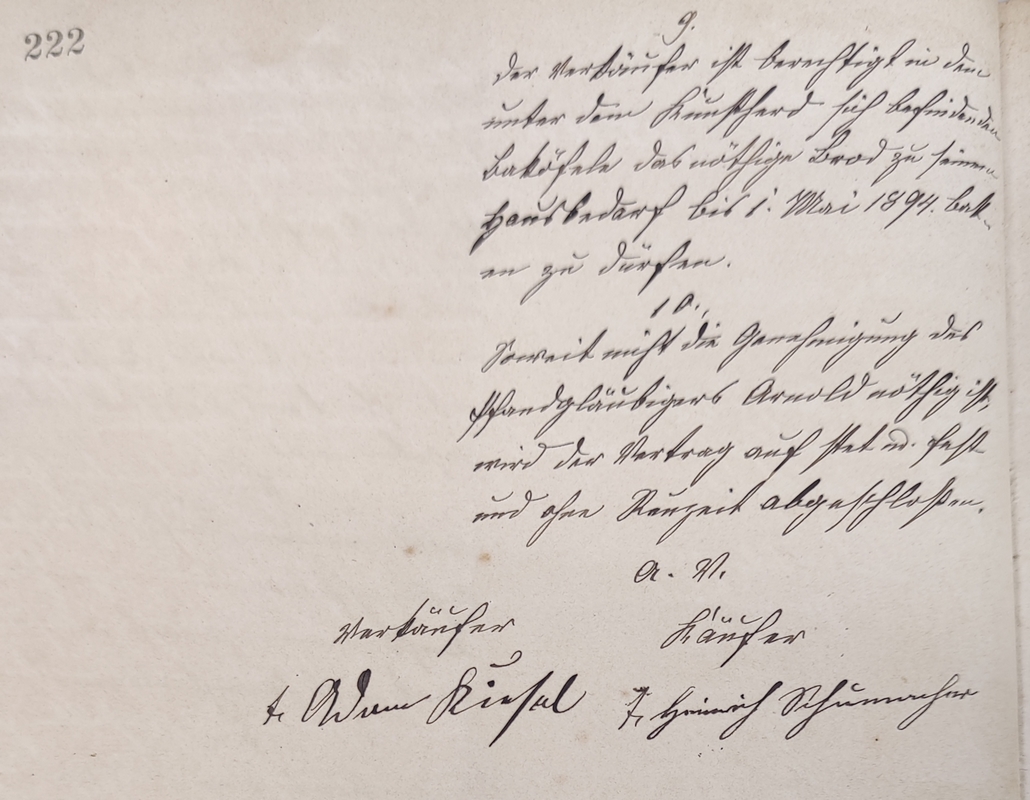 222
9.
Der Verkäufer ist berechtigt in dem
unter dem Kunstherd sich befindenden
Baköfele das nöthige Brod zu seinem
Hausbedarf bis 1. Mai 1894. bak-
en zu dürfen.
10.,
Soweit nicht die Genehmigung des
Pfandgläubigers Arnold nöthig ist,
wird der Vertrag auf stet u. fest
und ohne Reuzeit abgeschloßen.
A. V.
Verkäufer
Käufer
t. Adam Kiesel
T. Heinrich Schumacher